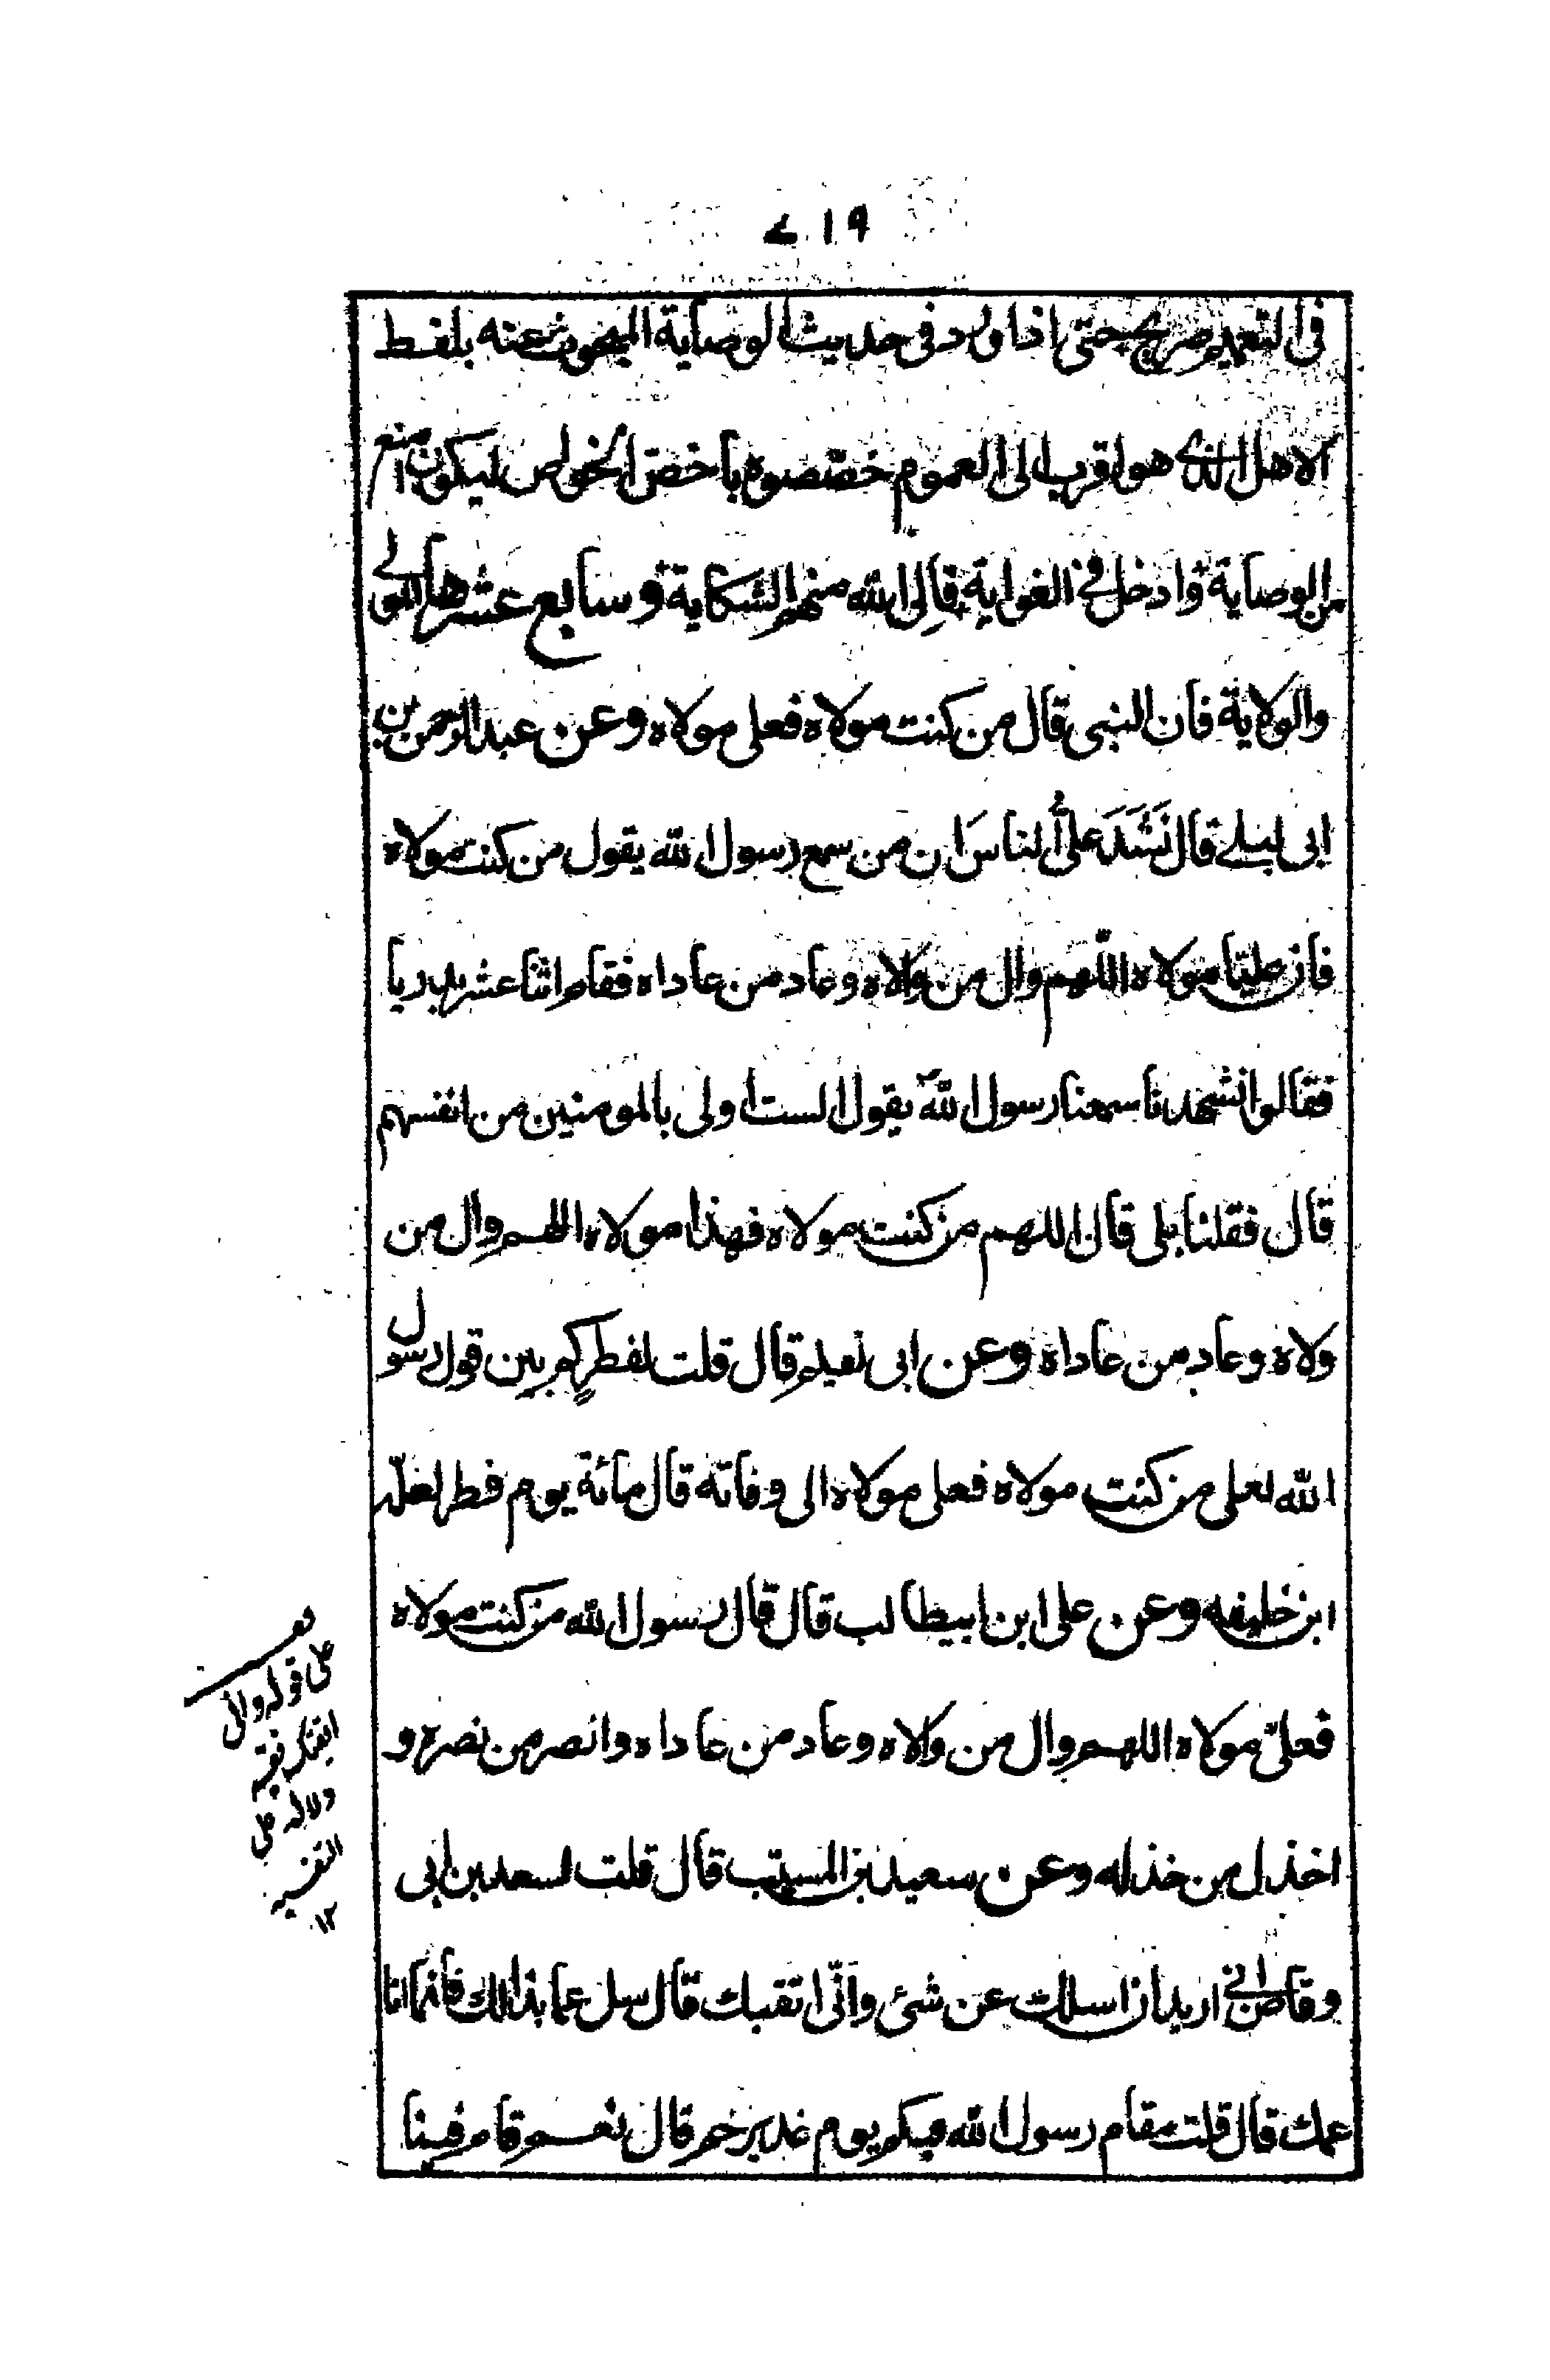 ٦١٩
فی التعمیم صریح حتی اذا ورد فی حدیث الوصایة المبحوث عنه بلفظ
الاهل الذی هو اقرب الی العموم خصّصوه باخصّ الخواص لیکون امنع
من الوصایة وادخل فی الغوایة فالی الله منهم الشکایة وسابع عشرها المولی
والولایة فان النبی قال من کنت مولاه فعلی مولاه وعن عبد الرحمن بن
ابی لیلے قال نَشَدَ علیٌّ الناسَ ان من سمع رسول الله یقول من کنت مولاه
فان علیّا مولاه اللّهم وال من والاه وعاد من عاداه فقام اثنا عشر بدریا
فقالوا نشهد نا سمعنا رسول الله یقول الست اولی بالمومنین من انفسهم
قال فقلنا بلی قال اللهم من کنت مولاه فهذا مولاه اللهم وال من
ولاه وعاد من عاداه وعن ابی نعیم قال قلت لفطر کم بین قول رسول
الله لعلی من کنت مولاه فعلی مولاه الی وفاته قال مائة یوم فطر لعلّه
ابن خلیفه وعن علی ابن ابیطالب قال قال رسول الله من کنت مولاه
فعلیّ مولاه اللهم وال من والاه وعاد من عاداه وانصر من نصره و
اخذل من خذله وعن سعید بن المسیّب قال قلت لسعد بن ابی
وقاص انی ارید ان اسلک عن شئ وانّی اتقیک قال سل عما بذا لک فانما انا
عمک قال قلت مقام رسول الله فیکم یوم غدیر خم قال نعم قام فینا
علی قوله وانی
اتقیک فیه
دلالة علی
التقیه
١٢